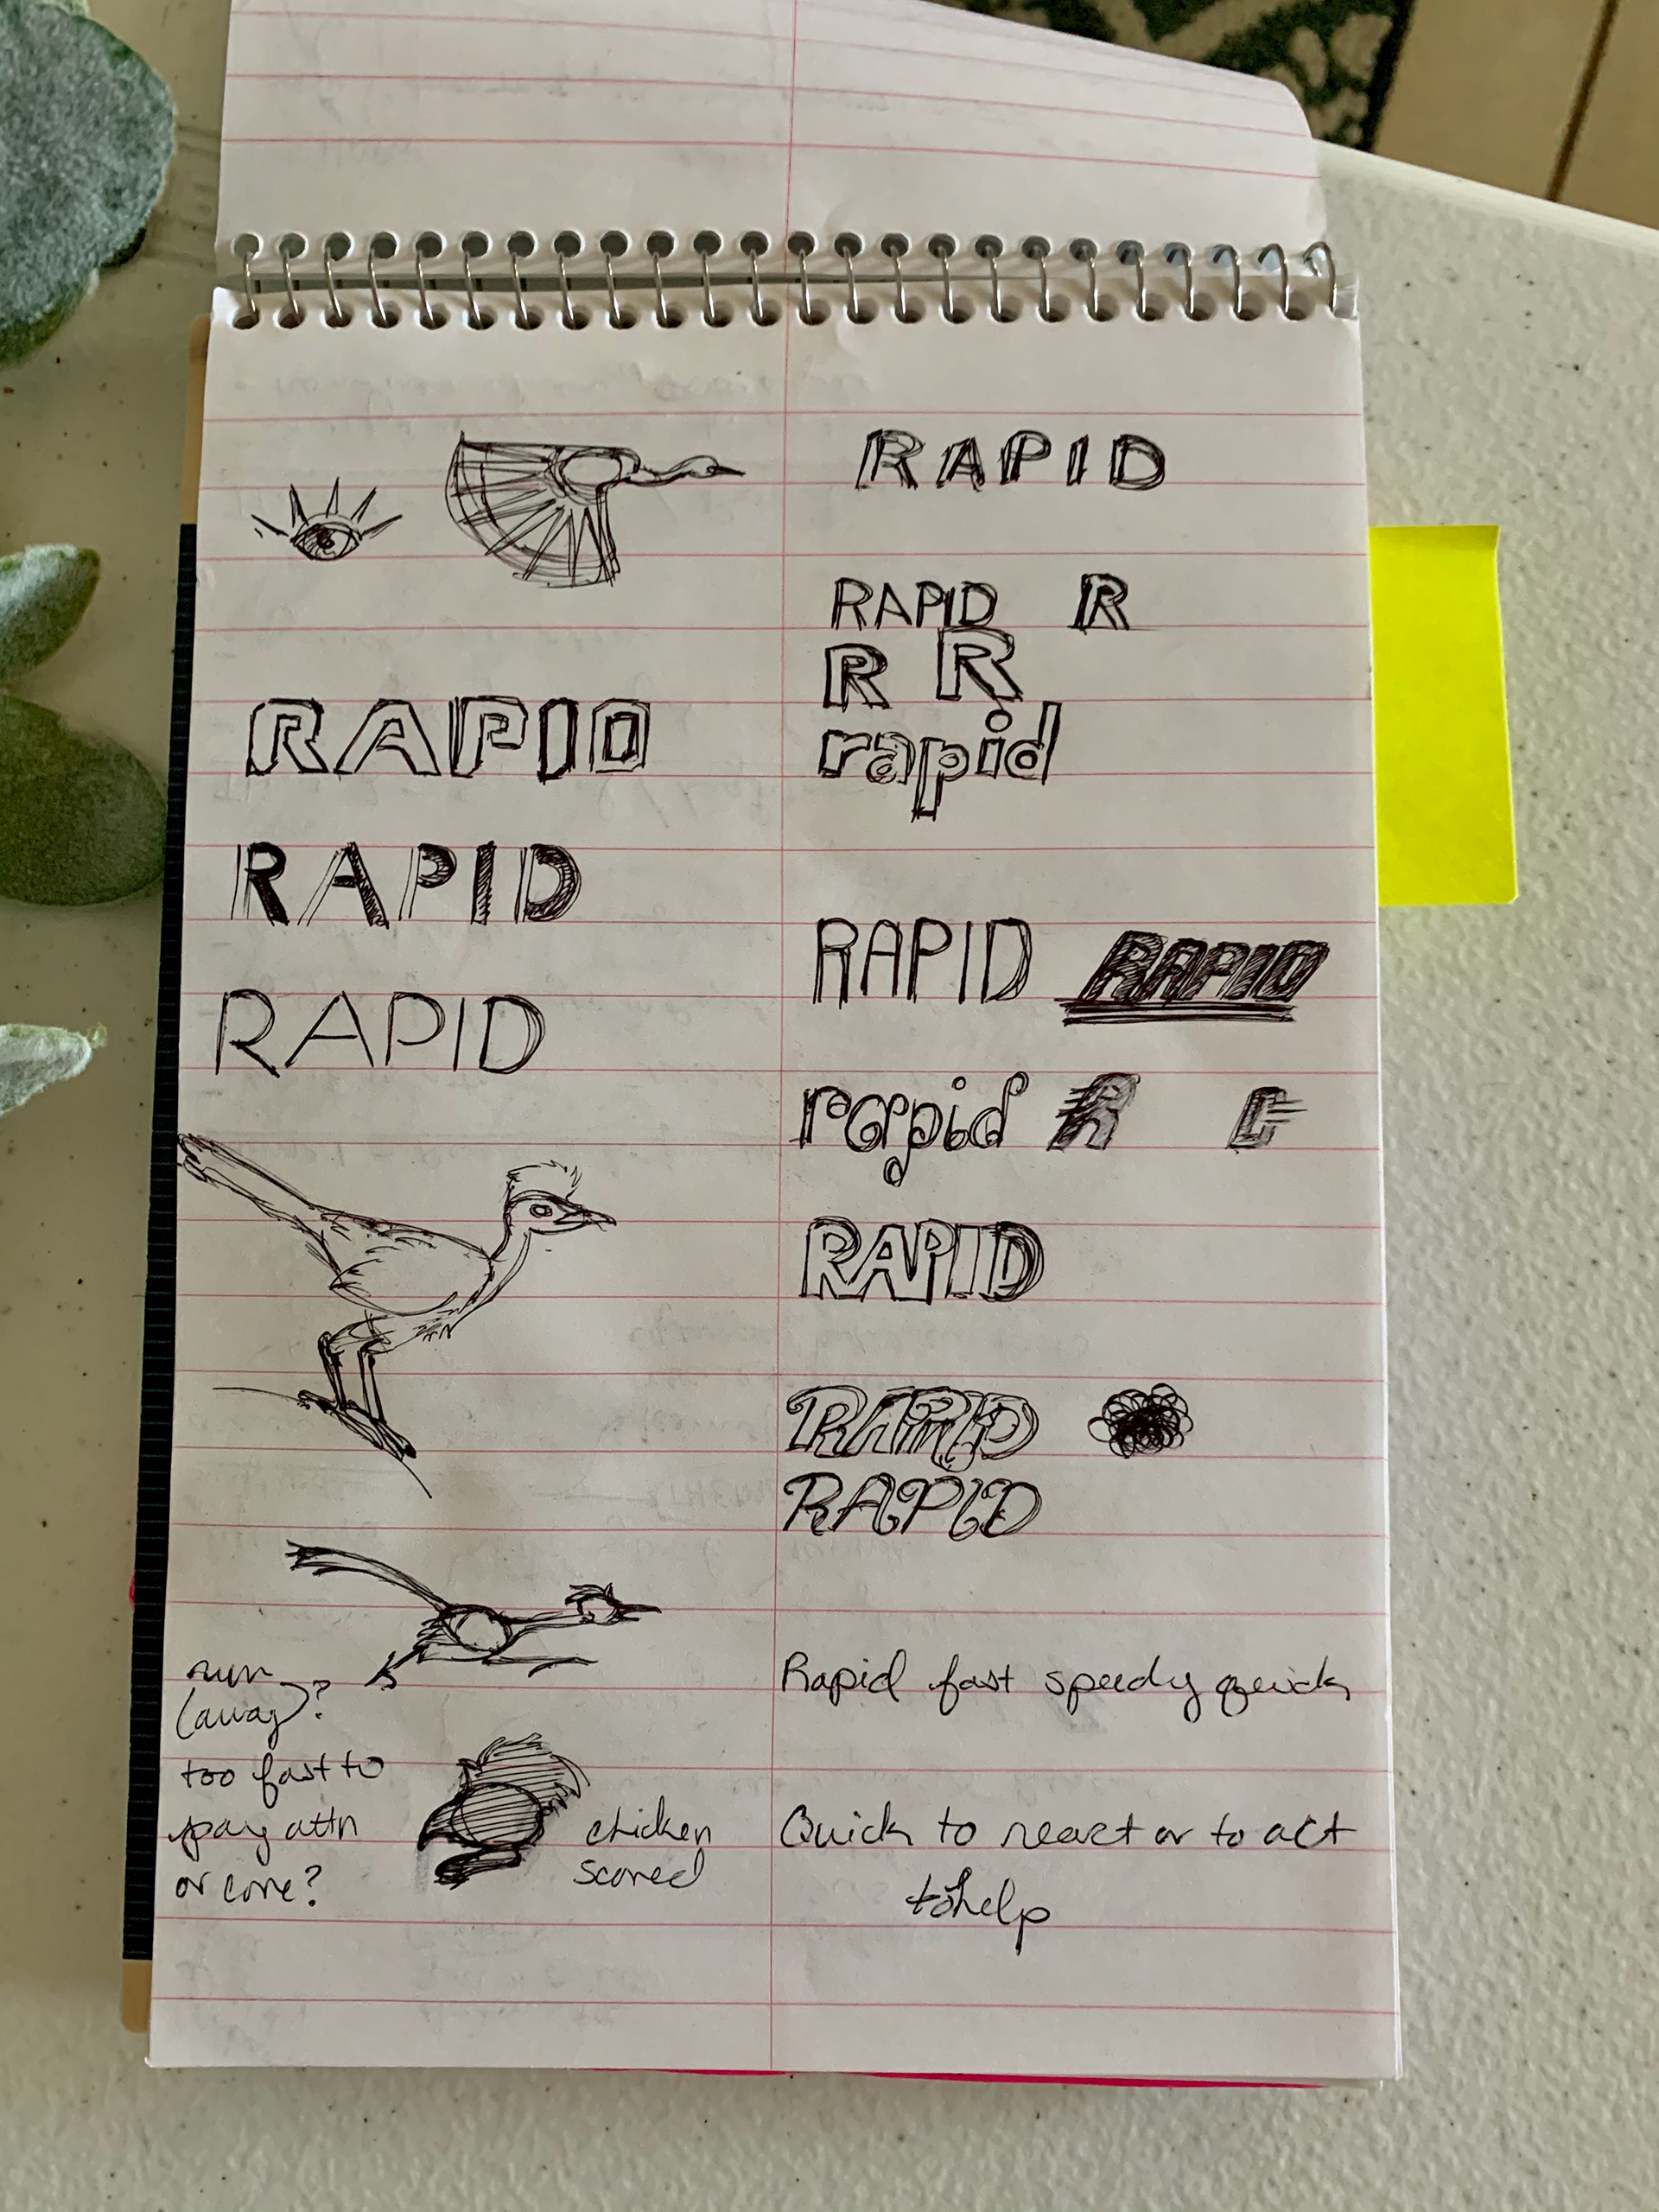 RAPID
RAPID R
R R
rapid
RAPID
RAPID
RAPID
RAPID RAPID
rapid R
RAPID
RAPID
RAPID
run
(away)?
too fast to
pay attn
or care?
chicken
scared
Rapid fast speedy quick
Quick to react or to act
to help